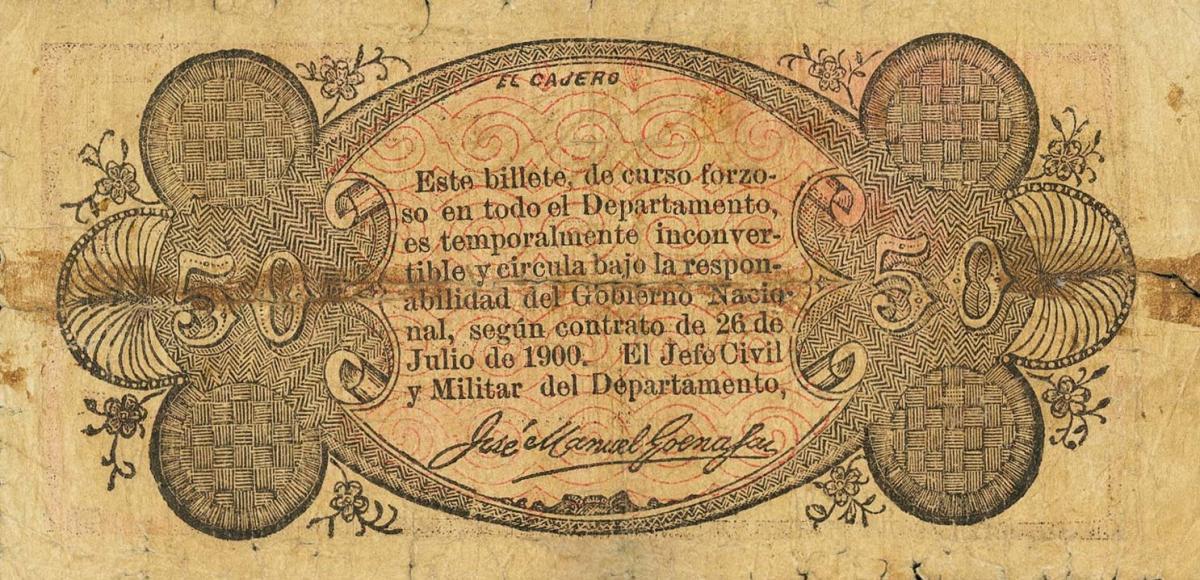 EL CAJERO
Este billete, de curso forzo-
so en todo el Departamento,
es temporalmente inconver-
tible y circula bajo la respon-
abilidad del Gobierno Nacio-
nal, según contrato de 26 de
Julio de 1900. El Jefe Civil
y Militar del Departamento,
50 50
José Manuel Goenaga